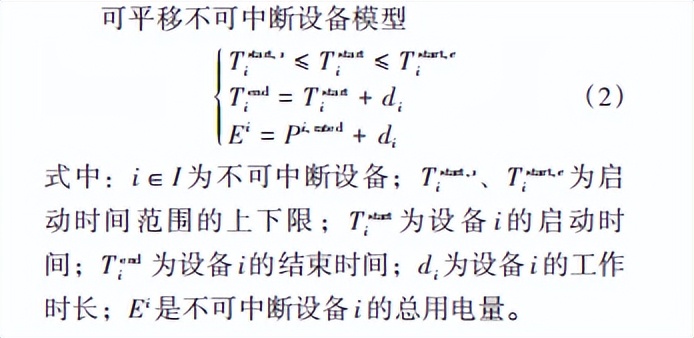 可平移不可中断设备模型
T_i^{start,s} ≤ T_i^{start} ≤ T_i^{start,e}
T_i^{end} = T_i^{start} + d_i （2）
E^i = P^{i,rated} + d_i
式中：i∈I为不可中断设备；T_i^{start,s}、T_i^{start,e}为启
动时间范围的上下限；T_i^{start}为设备i的启动时
间；T_i^{end}为设备i的结束时间；d_i为设备i的工作
时长；E^i是不可中断设备i的总用电量。